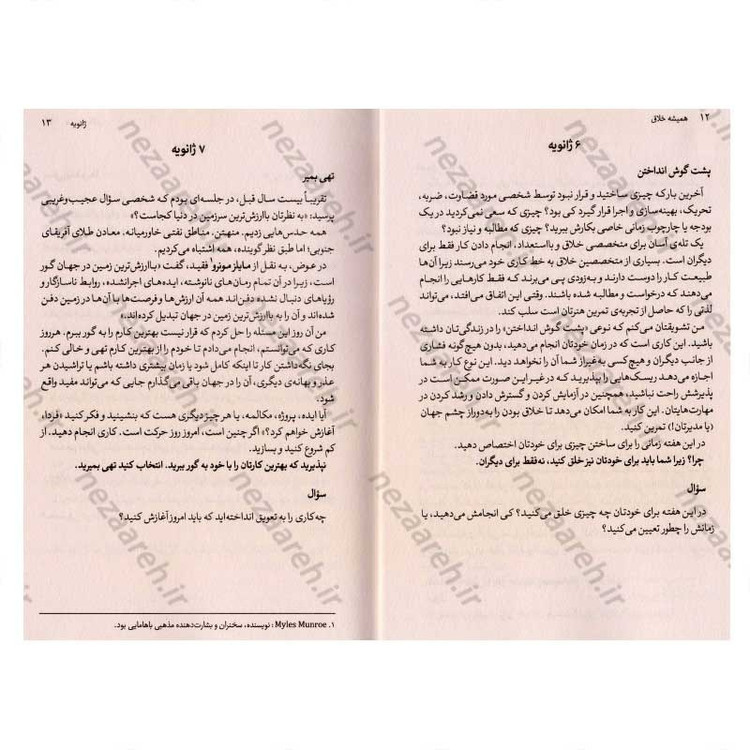 ۱۲ همیشه خلاق
۶ ژانویه
پشت گوش انداختن
آخرین بارکه چیزی ساختید و قرار نبود توسط شخصی مورد قضاوت، ضربه،
تحریک، بهینه‌سازی و اجرا قرار گیرد کی بود؟ چیزی که سعی نمی‌کردید در یک
بودجه یا چارچوب زمانی خاصی بکارش ببرید؟ چیزی که مطالبه و نیاز نبود؟
یک تله‌ی آسان برای متخصصی خلاق و بااستعداد، انجام دادن کار فقط برای
دیگران است. بسیاری از متخصصین خلاق به خط کاری خود می‌رسند زیرا آن‌ها
طبیعت کار را دوست دارند و به‌زودی پی می‌برند که فقط کارهایی را انجام
می‌دهند که درخواست و مطالبه شده باشند. وقتی این اتفاق می‌افتد، می‌تواند
لذتی را که حاصل از تجربه‌ی تمرین هنرتان است سلب کند.
من تشویقتان می‌کنم که نوعی «پشت گوش انداختن» را در زندگی‌تان داشته
باشید. این کاری است که در زمان خودتان انجام می‌دهید، بدون هیچ‌گونه فشاری
از جانب دیگران و هیچ‌کسی به‌غیراز شما آن را نخواهد دید. این نوع کار به شما
اجازه می‌دهد ریسک‌هایی را بپذیرید که در غیر این صورت ممکن است در
پذیرشش راحت نباشید، همچنین در آزمایش کردن و گسترش دادن و رشد کردن در
مهارت‌هایتان. این کار به شما امکان می‌دهد تا خلاق بودن را به‌دوراز چشم جهان
(یا مدیرتان!) تمرین کنید.
در این هفته زمانی را برای ساختن چیزی برای خودتان اختصاص دهید.
چرا؟ زیرا شما باید برای خودتان نیز خلق کنید، نه‌فقط برای دیگران.
سؤال
در این هفته برای خودتان چه چیزی خلق می‌کنید؟ کی انجامش می‌دهید، یا
زمانش را چطور تعیین می‌کنید؟
ژانویه ۱۳
۷ ژانویه
تهی بمیر
تقریباً بیست سال قبل، در جلسه‌ای بودم که شخصی سؤال عجیب‌وغریبی
پرسید: «به نظرتان باارزش‌ترین سرزمین در دنیا کجاست؟»
همه حدس‌هایی زدیم. منهتن. مناطق نفتی خاورمیانه. معادن طلای آفریقای
جنوبی؛ اما طبق نظر گوینده، همه اشتباه می‌کردیم.
در عوض، به نقل از مایلز مونرو۱ فقید، گفت «باارزش‌ترین زمین در جهان گور
است، زیرا در آن تمام رمان‌های نانوشته، ایده‌های اجرانشده، روابط ناسازگار و
رؤیاهای دنبال نشده دفن‌اند. همه آن ارزش‌ها و فرصت‌ها با آن‌ها در زمین دفن
شده‌اند و آن را به باارزش‌ترین زمین در جهان تبدیل کرده‌اند.»
من آن روز این مسئله را حل کردم که قرار نیست بهترین کارم را به گور ببرم. هرروز
کاری که می‌توانستم، انجام می‌دادم تا خودم را از بهترین کارم تهی و خالی کنم.
بجای نگه‌داشتن کار تا اینکه کامل شود یا زمان بیشتری داشته باشم یا تراشیدن هر
عذر و بهانه‌ی دیگری، آن را در جهان باقی می‌گذارم جایی که می‌تواند مفید واقع
شود.
آیا ایده، پروژه، مکالمه، یا هر چیز دیگری هست که بنشینید و فکر کنید «فردا»
آغازش خواهم کرد؟» اگر چنین است، امروز روز حرکت است. کاری انجام دهید. از
کم شروع کنید و بسازید.
نپذیرید که بهترین کارتان را با خود به گور ببرید. انتخاب کنید تهی بمیرید.
سؤال
چه‌کاری را به تعویق انداخته‌اید که باید امروز آغازش کنید؟
۱. Myles Munroe: نویسنده، سخنران و بشارت‌دهنده مذهبی باهامایی بود.
nezaareh.ir